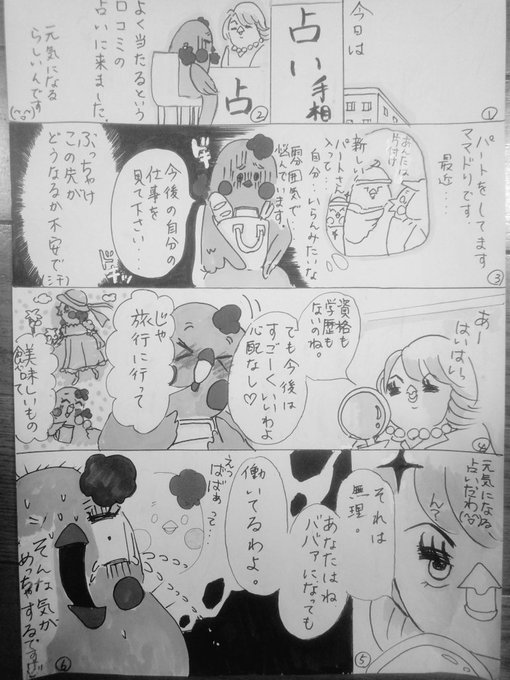 今日は
占い
手相
①
占
よく当たるという
口コミの
占いに来ました。
元気になる
らしいんです
②
パートをしてます
ママドリです。
最近…
あなたは
新しい
パートさん
入って
自分‥いらんみたいな
雰囲気で
悩んでます。
③
今後の自分の
仕事を
見て下さい…
ぶっちゃけ
この先が
どうなるか不安で(汗)
あー
はいはい。
④
資格も
学歴も
ないのね。
でも今後は
すごーくいいわよ
心配なし♡
じゃ
旅行に行って
美味しいもの
食べて
元気になる
占いだわ
ん?
⑤
それは
無理。
あなたはね
ババァになっても
働いてるわよ。
えっ
ばばぁって…
そんな気が
めっちゃするです
⑥